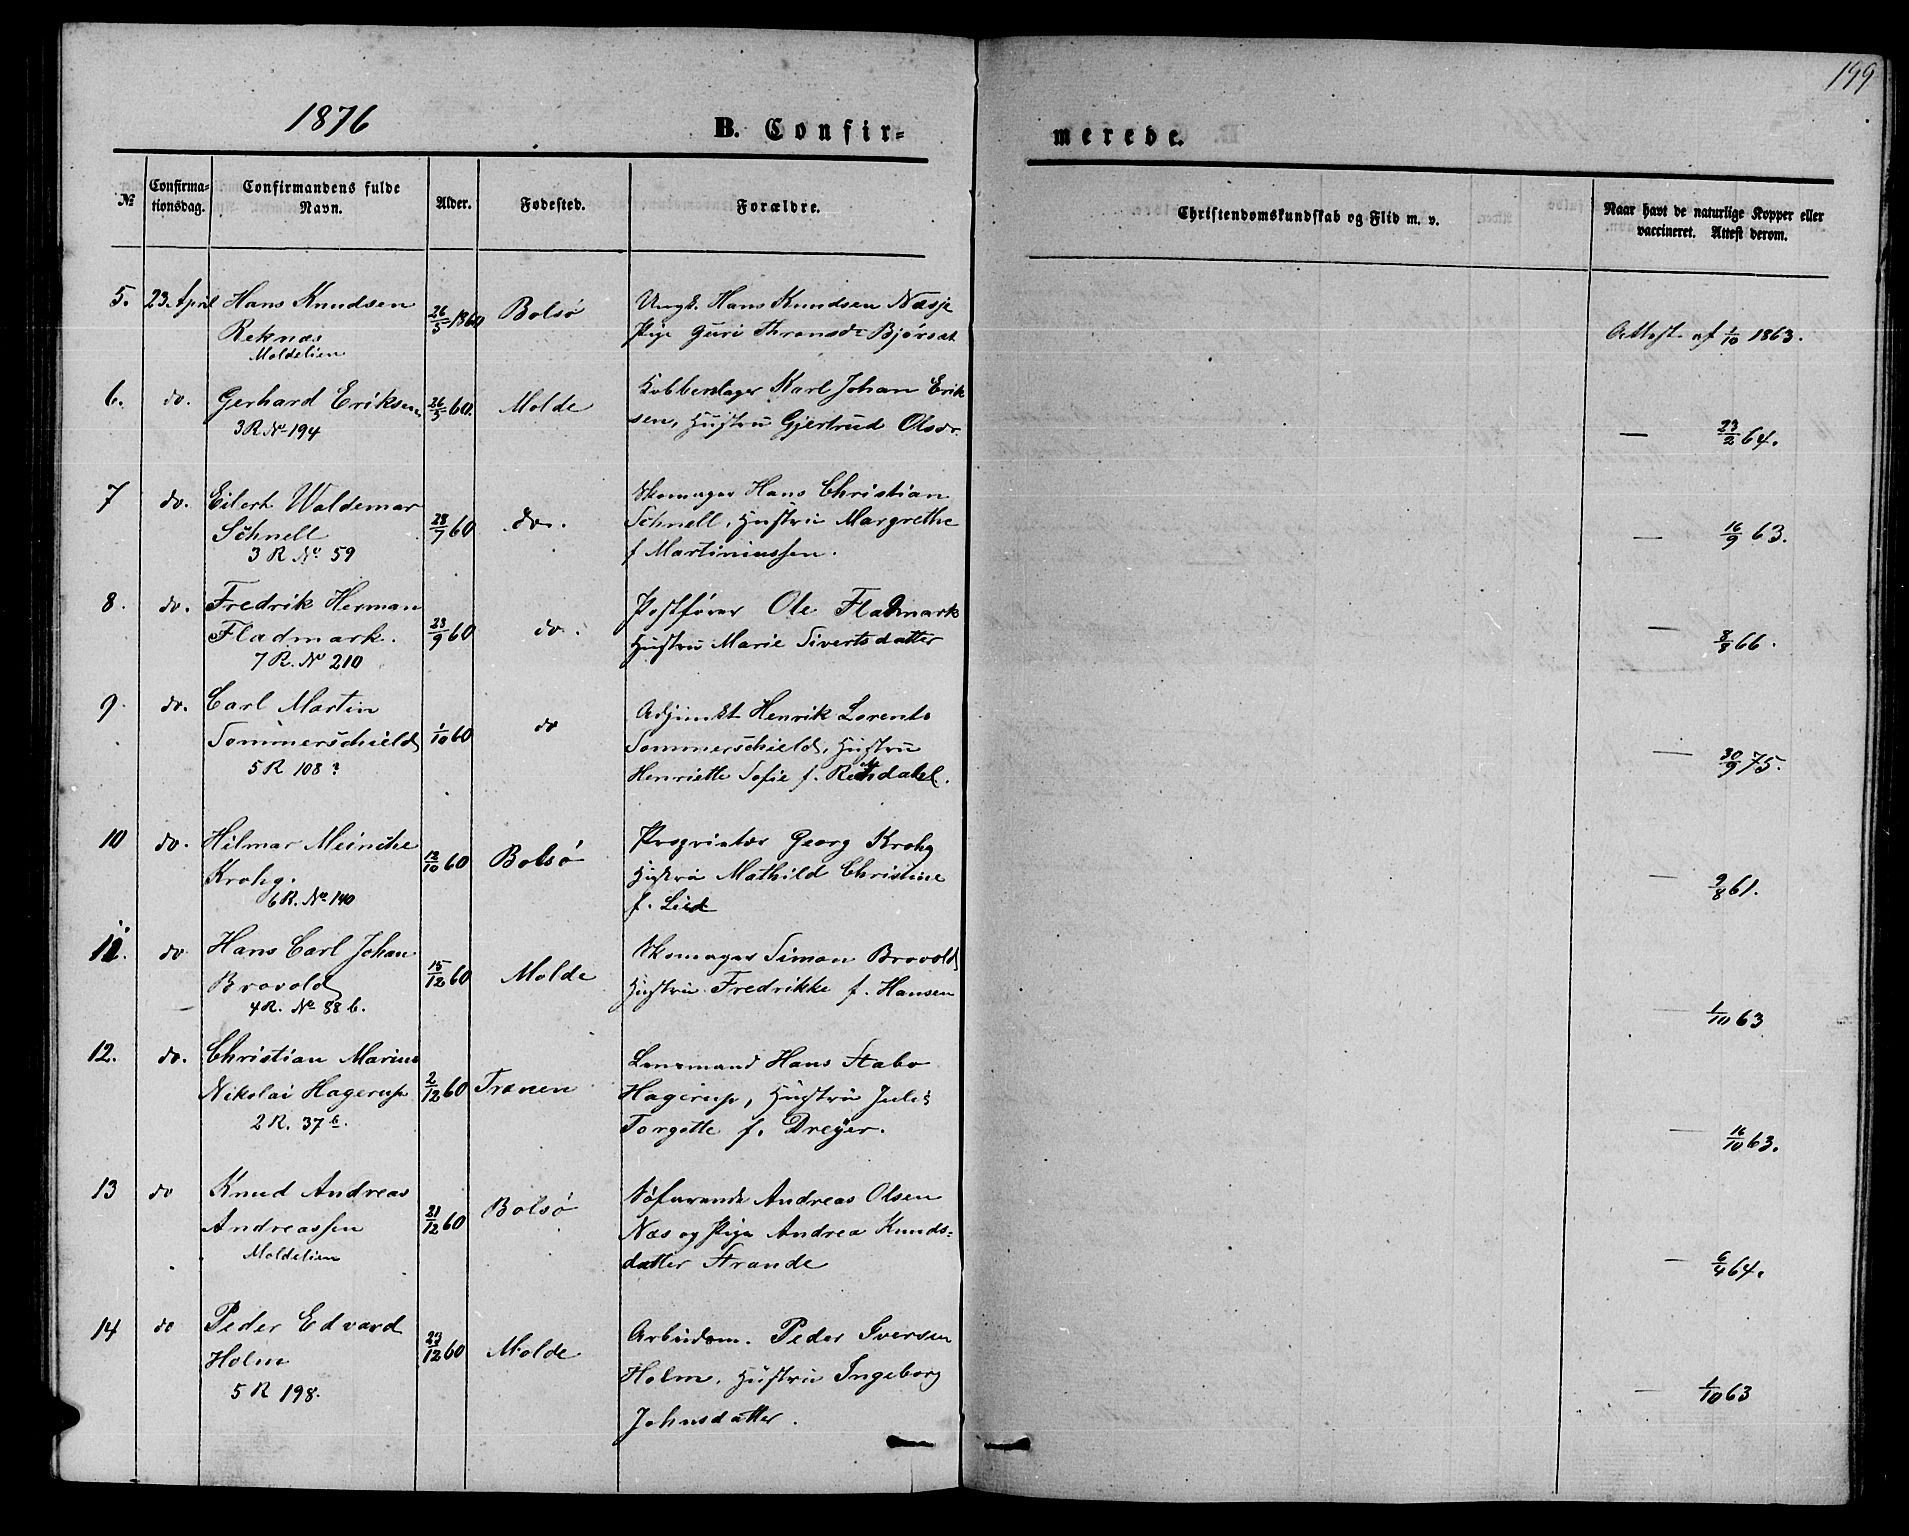 199
1876
B. Confir=
merede.
№
Confirma-
tionsdag.
Confirmandens fulde
Navn.
Alder.
Fødested.
Forældre.
Christendomskundskab og Flid m. v.
Naar havt de naturlige Kopper eller
vaccineret. Attest derom.
5. 23 April Hans Knudsen 26/5 1860 Bolsø Ungk. Hans Knudsen Næsje
Reknæs Pige Guri Thronsdr Bjørset Attest af 1/10 1863.
Moldelien
6. do. Gerhard Eriksen 26/5 60. Molde Kobberslager Karl Johan Erik
3 R № 194 sen, Hustru Gjertrud Olsdr. — 23/2 64.
7 do. Eilert Waldemar 28/7 60 do. Skomager Hans Christian
Schnell Schnell, Hustru Margrethe — 16/9 63.
3 R. № 59 f Martiniussen.
8. do. Fredrik Herman 23/9 60 do. Postfører Ole Fladmark
Fladmark. Hustru Marie Sivertsdatter — 8/8 66.
7 R. № 210
9. do. Carl Martin 1/10 60 do Adjunkt Henrik Lorents
Sommerschield Sommerschield, Hustru — 30/9 75.
5 R 108 Henriette Sofie f.
10 do. Hilmar Meinche 12/10 60 Bolsø Proprietær Georg Krohg
Krohg. Hustru Mathild Christine — 9/8 61.
6 R. № 140 f. Lied
11. do Hans Carl Johan 15/12 60 Molde Skomager Simon Brovold
Brovold Hustru Fredrikke f. Hansen — 1/10 63
4 R. № 88 b.
12. do. Christian Marius 2/12 60 Trænen Lensmand Hans Stabo
Nikolai Hagerup Hagerup, Hustru Juli
2 R. 37 b. Torgette f. Dreyer. — 16/10 63.
13 do Knud Andreas 21/12 60 Bolsø Søfarende Andreas Olsen
Andreassen Næs og Pige Andrea Knuds=
Moldelien datter Strande — 6/4 64.
14 do Peder Edvard 23/12 60 Molde Arbeidsm. Peder Iversen
Holm Holm, Hustru Ingeborg
5 R 198. Johnsdatter. — 1/10 63